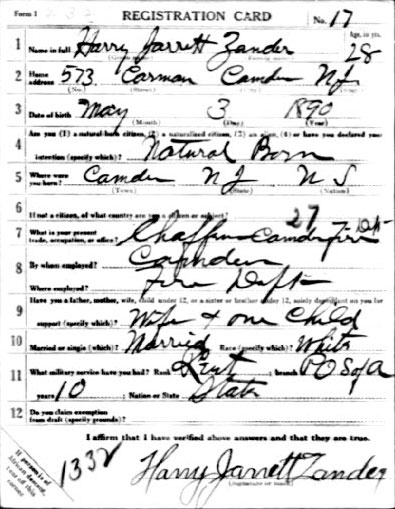 Form 1 REGISTRATION CARD No. 17
1 Name in full Harry Jarrett Zander Age, in yrs. 28
(Given name) (Family name)
2 Home address 573 Carman Camden NJ
(No.) (Street) (City) (State)
3 Date of birth May 3 1890
(Month) (Day) (Year)
Are you (1) a natural-born citizen, (2) a naturalized citizen, (3) an alien, (4) or have you declared your
4 intention (specify which)? Natural Born
5 Where were you born? Camden NJ U S
(Town) (State) (Nation)
6 If not a citizen, of what country are you a citizen or subject?
27
7 What is your present trade, occupation, or office? Camden Fire Dept
8 By whom employed? Camden
Where employed? Fire Dept
Have you a father, mother, wife, child under 12, or a sister or brother under 12, solely dependent on you for
9 support (specify which)? Wife + one Child
10 Married or single (which)? Married Race (specify which)? White
11 What military service have you had? Rank ; branch P O S of A
years 10 ; Nation or State State
12 Do you claim exemption from draft (specify grounds)?
I affirm that I have verified above answers and that they are true.
1332
Harry Jarrett Zander
(Signature or mark)
If person is of African descent, tear off this corner